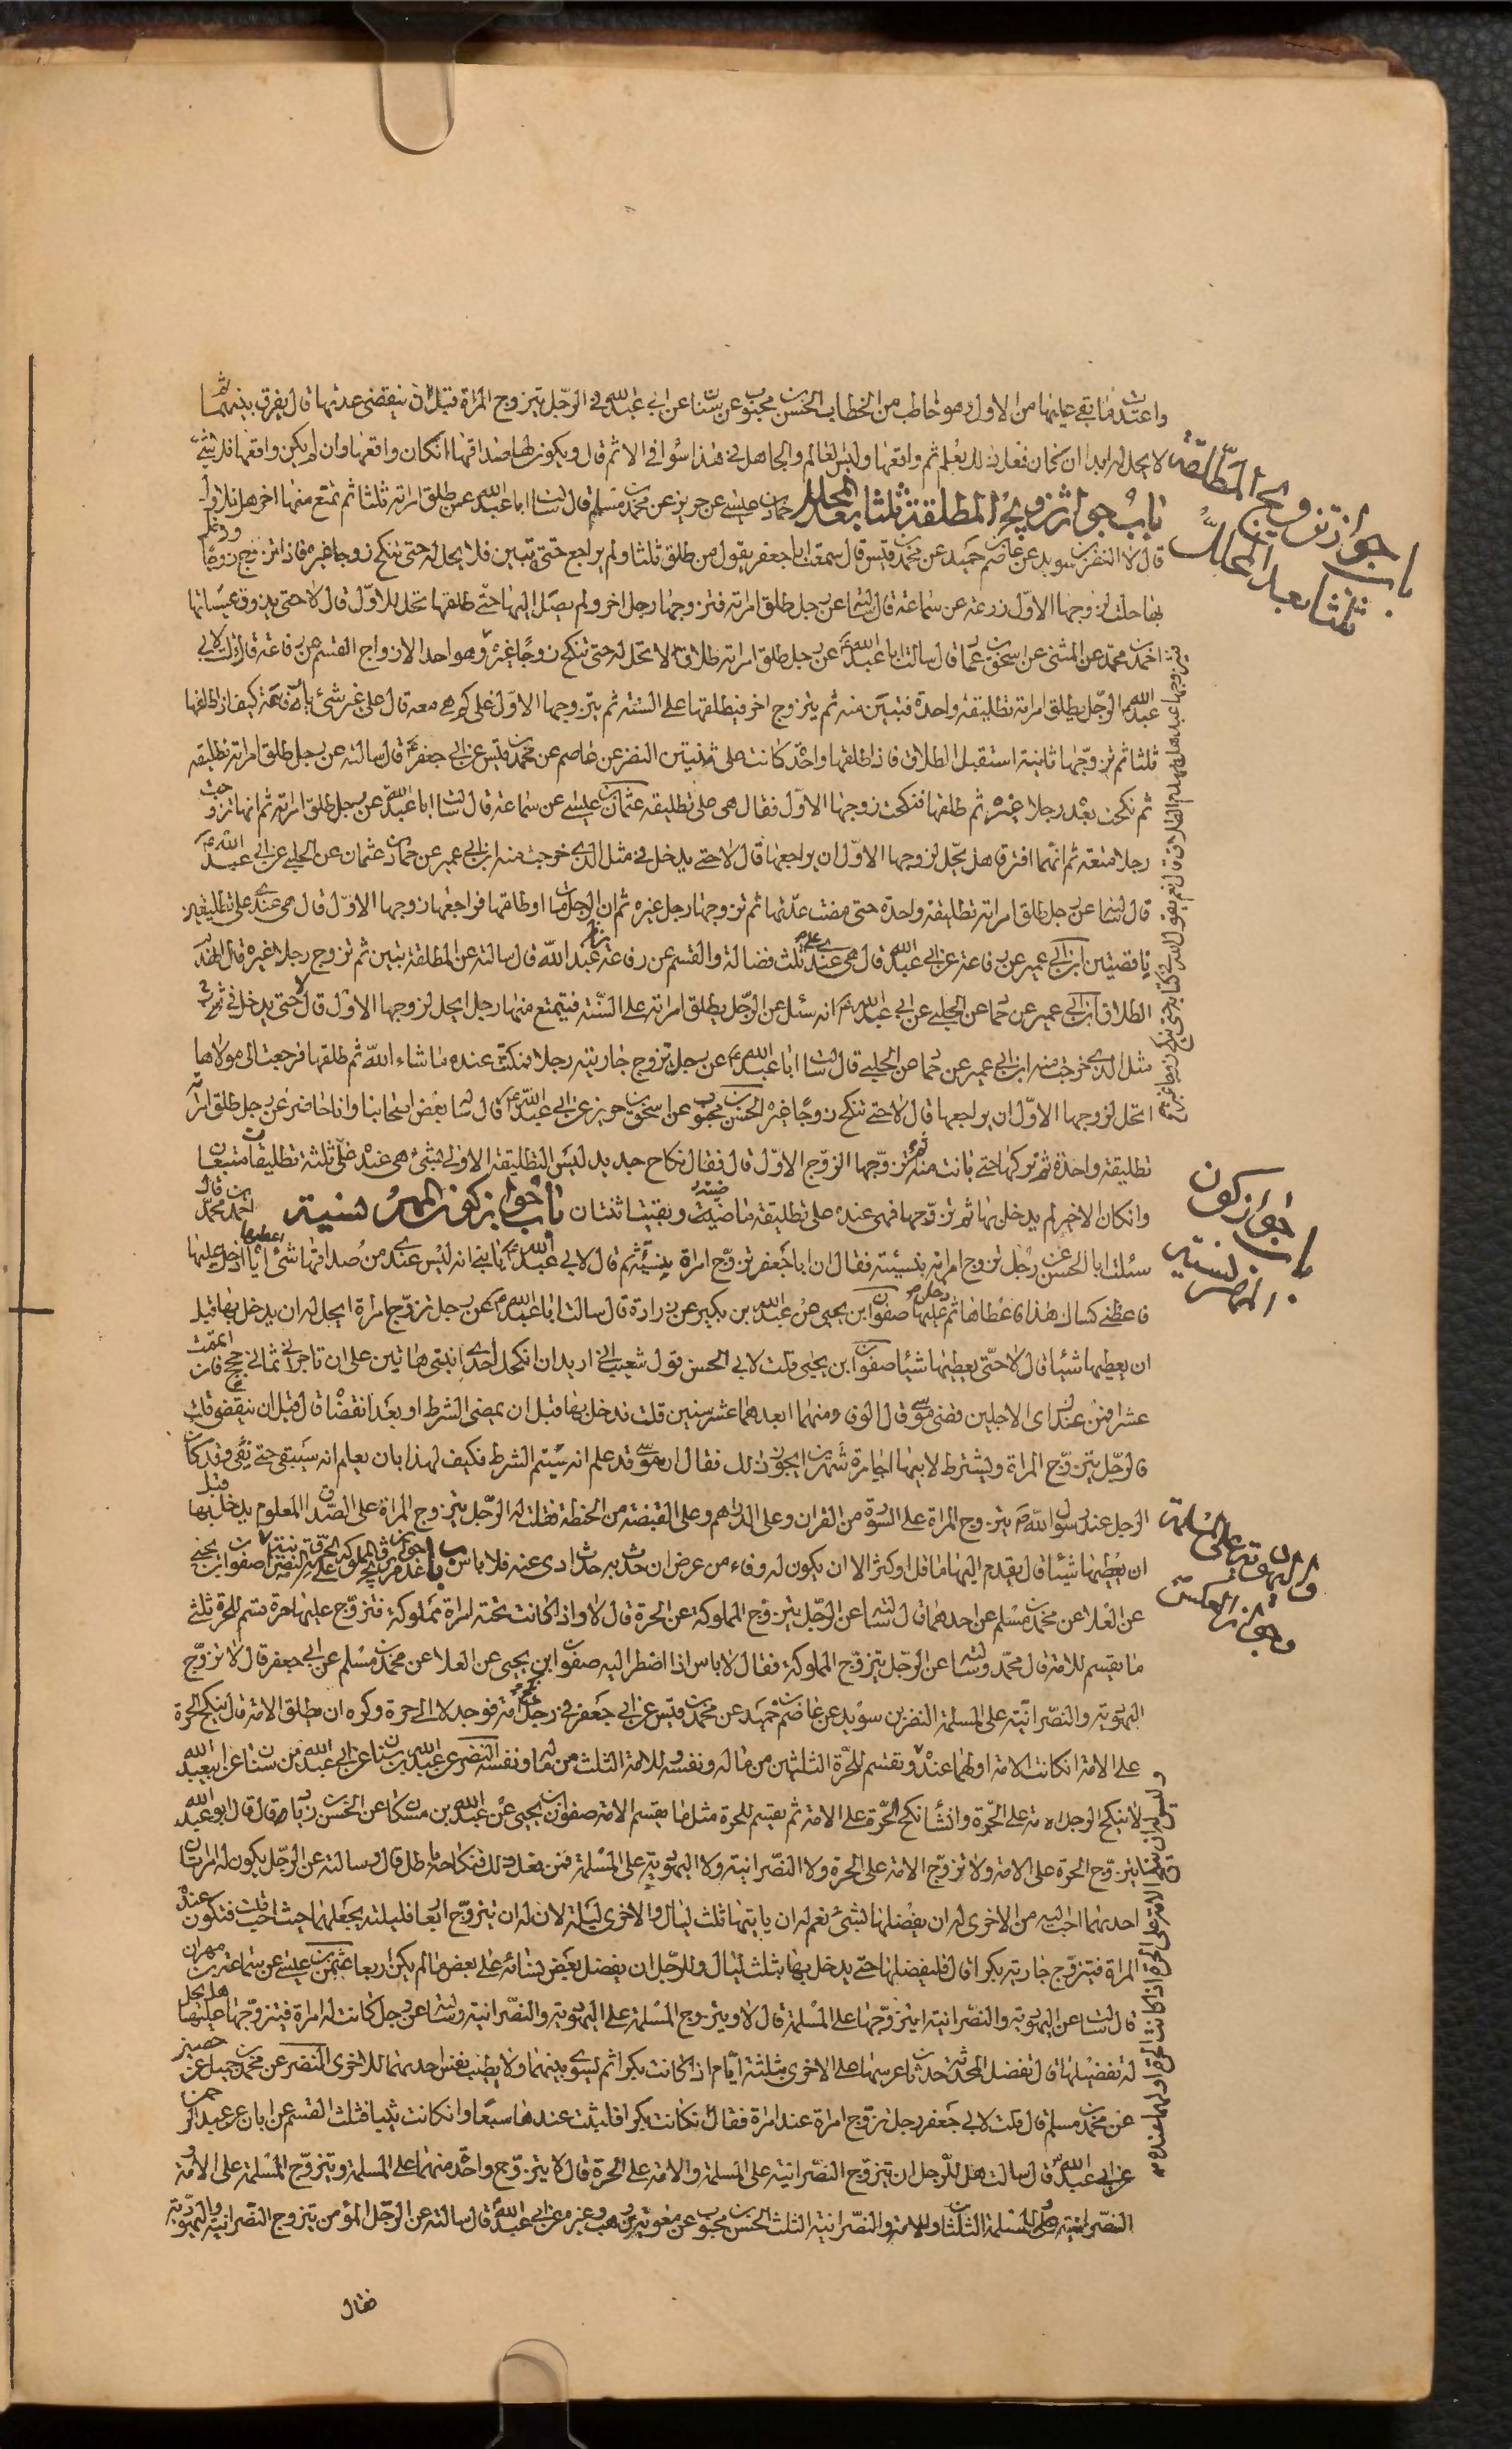 واعتدت ما بقي عليها من الاول وهو خاطب من الخطاب الحسن بن محبوب عن ابن سنان عن ابي عبد الله في الرجل يتزوج المراة قبل ان ينقضي عدتها قال يفرق بينهما ثم
لا يحل له ابدا ان كان فعل ذلك بعلم ثم واقعها وليس العالم والجاهل في هذا سواء في الاثم قال ويكون لها صداقها ان كان واقعها وان لم يكن واقعها فلا شيء
باب جواز تزويج المطلقة ثلثا بعد المحلل حماد بن عيسى عن حريز عن محمد بن مسلم قال سالت ابا عبد الله عمن طلق امراته ثلثا ثم تمتع منها اخر هل تحل للاول
قال لا النضر بن سويد عن عاصم بن حميد عن محمد بن قيس قال سمعت ابا جعفر يقول من طلق ثلثا ولم يراجع حتى تبين فلا يحل له حتى تنكح زوجا غيره فاذا تزوج زوجا ودخل
بها حلت لزوجها الاول زرعة عن سماعة قال سالته عن رجل طلق امراته فتزوجها رجل اخر ولم يصل اليها حتى طلقها تحل للاول قال لا حتى يذوق عسيلتها
احمد بن محمد عن المثنى عن اسحق بن عمار قال سالت ابا عبد الله عن رجل طلق امراته طلاقا لا تحل له حتى تنكح زوجا غيره وهو احد الازواج القسم عن رفاعة قال قلت لابي
عبد الله الرجل يطلق امراته تطليقة واحدة فتبين منه ثم يتزوج اخر فيطلقها على السنة ثم يتزوجها الاول على كم هي معه قال على غير شيء يا رفاعة كيف اذا طلقها
ثلثا ثم تزوجها ثانية استقبل الطلاق فاذا طلقها واحدة كانت على ثنتين النضر عن عاصم عن محمد بن قيس عن ابي جعفر قال سالته عن رجل طلق امراته تطليقة
ثم نكحت بعده رجلا غيره ثم طلقها فنكحت زوجها الاول فقال هي على تطليقة عثمان بن عيسى عن سماعة قال سالت ابا عبد الله عن رجل طلق امراته ثم انها تزوجت
رجلا متعة ثم انهما افترقا هل يحل لزوجها الاول ان يراجعها قال لا حتى يدخل في مثل الذي خرجت منه ابن ابي عمير عن حماد بن عثمان عن الحلبي عن ابي عبد الله
قال سالته عن رجل طلق امراته تطليقة واحدة حتى مضت عدتها ثم تزوجها رجل غيره ثم ان الرجل مات او طلقها فراجعها زوجها الاول قال هي عنده على تطليقتين
باقيتين ابن ابي عمير عن رفاعة عن ابي عبد الله قال هي عنده على ثلث فضالة والقسم عن رفاعة عن ابي عبد الله قال سالته عن المطلقة تبين ثم تزوج رجلا غيره قال انهدم
الطلاق ابن ابي عمير عن حماد عن الحلبي عن ابي عبد الله انه سئل عن الرجل يطلق امراته على السنة فيتمتع منها رجل ايحل لزوجها الاول قال لا حتى يدخل في
مثل الذي خرجت منه ابن ابي عمير عن حماد عن الحلبي قال سالت ابا عبد الله عن رجل تزوج جاريته رجلا فمكثت عنده ما شاء الله ثم طلقها فرجعت الى مولاها
اتحل لزوجها الاول ان يراجعها قال لا حتى تنكح زوجا غيره الحسن بن محبوب عن اسحق بن حريز عن ابي عبد الله قال ساله بعض اصحابنا وانا حاضر عن رجل طلق امراته
تطليقة واحدة ثم تركها حتى بانت منه ثم تزوجها الزوج الاول قال فقال نكاح جديد ليس التطليقة الاولى بشيء هي عنده على ثلثة تطليقات
وان كان الاخير لم يدخل بها ثم تزوجها فهي عنده على تطليقة ماضية وبقيت ثنتان باب جواز كون المهر نسية احمد بن محمد قال
سئلت ابا الحسن عن رجل تزوج امراته بنسيئة فقال ان ابا جعفر تزوج امراة بنسيئة ثم قال لابي عبد الله يا بني انه ليس عندي من صداقها شيء اعطيها اياه ادخل عليها
فاعطني كساك هذا فاعطاها ثم دخل عليها صفوان ابن يحيى عن عبد الله بن بكير عن زرارة قال سالت ابا عبد الله عن رجل تزوج امراة ايحل له ان يدخل بها قبل
ان يعطيها شيئا قال لا حتى يعطيها شيئا صفوان ابن يحيى قلت لابي الحسن قول شعيب اني اريد ان انكحك احدى ابنتي هاتين على ان تاجرني ثماني حجج فان اتممت
عشرا فمن عندك اي الاجلين قضى موسى قال الوفي منهما ابعدهما عشر سنين قلت فدخل بها قبل ان يمضي الشرط او بعد انقضائه قال قبل ان ينقضي قلت
فالرجل يتزوج المراة ويشترط لابيها اجارة شهرين ايجوز ذلك فقال ان موسى قد علم انه سيتم الشرط فكيف لهذا بان يعلم انه سيبقى حتى يفي وقد كان
الرجل عند رسول الله ص يتزوج المراة على السورة من القران وعلى الدرهم وعلى القبضة من الحنطة فقلت له الرجل يتزوج المراة على الصداق المعلوم يدخل بها قبل
ان يعطيها شيئا قال يقدم اليها ما قل او كثر الا ان يكون له وفاء من عرض ان حدث به حدث ادى عنه فلا باس باب صفوان ابن يحيى
عن العلا عن محمد بن مسلم عن احدهما قال سالته عن الرجل يتزوج المملوكة عن الحرة قال لا واذا كانت تحته امراة مملوكة فتزوج عليها حرة قسم للحرة ثلثي
ما يقسم للامة قال محمد وسالته عن الرجل يتزوج المملوكة فقال لا باس اذا اضطر اليه صفوان ابن يحيى عن العلا عن محمد بن مسلم عن ابي جعفر قال لا تزوج
اليهودية والنصرانية على المسلمة النضر بن سويد عن عاصم بن حميد عن محمد بن قيس عن ابي جعفر في رجل نكح امة فوجد طولا الى حرة وكره ان يطلق الامة قال ينكح الحرة
على الامة ان كانت الامة اولهما عنده وتقسم للحرة الثلثين من ماله ونفسه وللامة الثلث من ماله ونفسه النضر عن عبد الله بن سنان عن ابي عبد الله
لا ينكح الرجل الامة على الحرة وان شاء نكح الحرة على الامة ثم يقسم للحرة مثلي ما يقسم الامة صفوان بن يحيى عن عبد الله بن مسكان عن الحسن بن زياد قال قال ابو عبد الله
يتزوج الحرة على الامة ولا تزوج الامة على الحرة ولا النصرانية ولا اليهودية على المسلمة فمن فعل ذلك فنكاحه باطل قال وسالته عن الرجل يكون له امراتان
احديهما احب اليه من الاخرى له ان يفضلها بشيء نعم له ان ياتيها ثلث ليال والاخرى ليلة لان له ان يتزوج اربعا فليلتيه يجعلهما حيث احب قلت فتكون عنده
المراة فيتزوج جارية بكرا قال فليفضلها حتى يدخل بها بثلث ليال وللرجل ان يفضل بعض نسائه على بعض ما لم يكن اربعا عثمن بن عيسى عن سماعة بن مهران
قال سالته عن اليهودية والنصرانية ايتزوجها على المسلمة قال لا ويتزوج المسلمة على اليهودية والنصرانية وسالته عن رجل كانت له امراة فيتزوج عليها هل يحل
له تفضيلها قال تفضل المحدثة حدثان عرسها على الاخرى بثلثة ايام اذا كانت بكرا ثم يسوي بينهما ولا يطيب نفس احديهما للاخرى النضر عن محمد بن جميل عن حصين
عن محمد بن مسلم قال قلت لابي جعفر رجل تزوج امراة عند امراة فقال ان كانت بكرا فليبث عندها سبعا وان كانت ثيبا فثلث القسم عن ابان عن عبد الرحمن
عن ابي عبد الله قال سالت هل للرجل ان يتزوج النصرانية على المسلمة والامة على الحرة قال لا يتزوج واحدة منهما على المسلمة ويتزوج المسلمة على الامة و
النصرانية وللمسلمة الثلثان وللامة والنصرانية الثلث الحسن بن محبوب عن معوية بن وهب وغيره عن ابي عبد الله قال سالته عن الرجل المؤمن يتزوج النصرانية واليهودية
فقال
باب جواز تزويج المطلقة
ثلثا بعد المحلل
باب جواز كون
المهر نسية
وجواز العكس